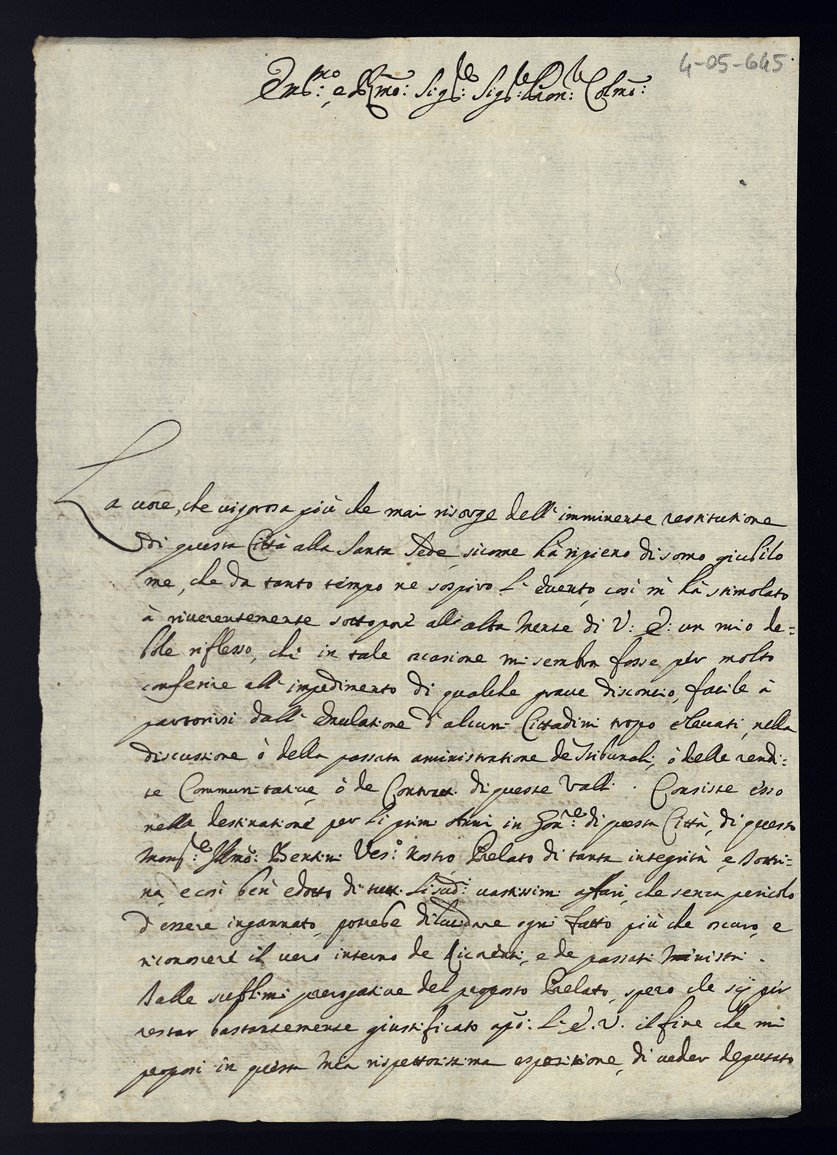 4-05-645
Em.mo: e R.mo: Sig.re: Sig.re: Pron: Colmo:
La voce, che vigorosa più che mai risorge dell'imminente restitutione
di questa Città alla Santa Sede, sicome hà ripieno di somo giubilo
me, che da tanto tempo ne sospiro l'evento, così m'hà stimolato
à riverentemente sottopore all'alta Mente di V: E: un mio de=
bole riflesso, che in tale ocasione mi sembra fosse per molto
conferire all'impedimento di qualche grave disconcio, facile à
partorirsi dall'Emulatione d'alcuni Cittadini tropo elevati, nella
discussione ò della passata aministratione de Tribunali, ò delle rendi=
te Communitative, ò de Contratti di queste Valli. Consiste esso
nella destinatione per li primi Anni in Gov.re di questa Città, di questo
Mons.re Illmo: Bentini Ves.o Nostro Prelato di tanta integrità, e Dottri=
na, e così ben edotto di tutti li sud.i vastissimi affari, che senza pericolo
d'essere ingannato, potrebe dilucidare ogni fatto più che oscuro, e
riconoscere il vero interno de Ricorenti, e de passati Ministri.
Dalle sublimi prerogative del proposto Prelato, spero che sij per
restar bastantemente giustificato apò: L'E. V. il fine che mi
proposi in questa Mia rispettosissima espositione, di veder deputato